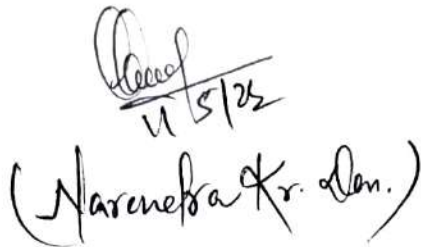 11/5/25
(Narendra Kr. Den.)